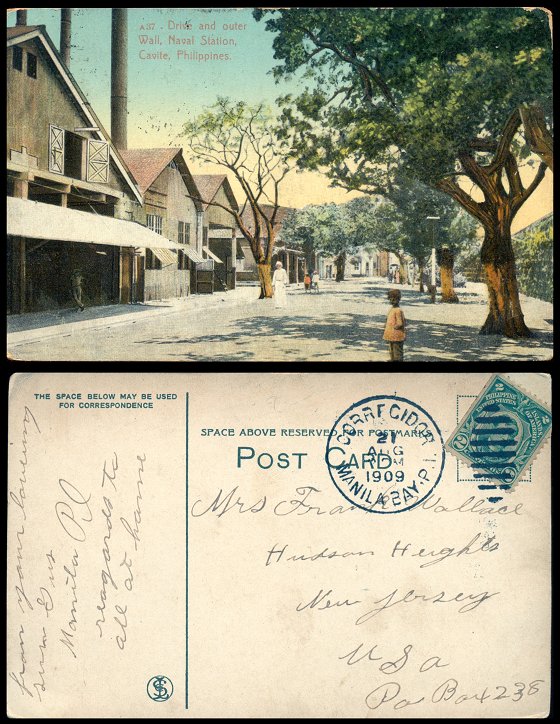 A37. Drive and outer
Wall, Naval Station,
Cavite, Philippines.
THE SPACE BELOW MAY BE USED
FOR CORRESPONDENCE
SPACE ABOVE RESERVED FOR POSTMARKS
POST CARD
CORREGIDOR
21
AUG
M
1909
MANILA BAY, P.I.
2 2
PHILIPPINE ISLANDS
UNITED STATES OF AMERICA
from your loveing
sun Gus
Manila P I
reagards to
all at home
Mrs Frank Wallace
Hudson Heights
New Jersey
U S a
Po Box 238